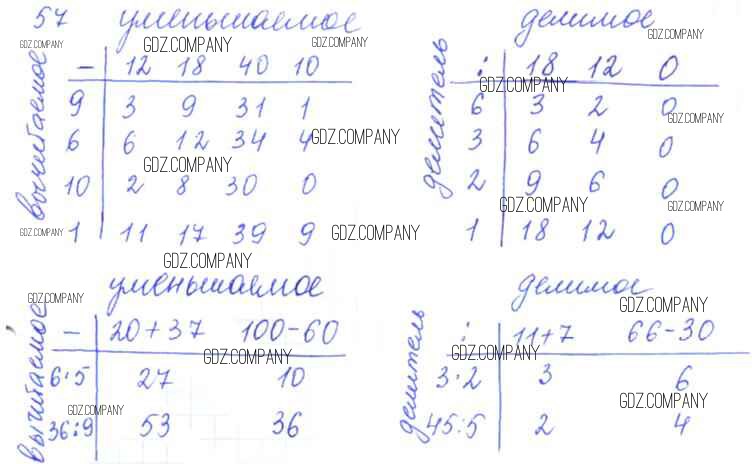 57 уменьшаемое делимое
GDZ.COMPANY GDZ.COMPANY GDZ.COMPANY GDZ.COMPANY
вычитаемое делитель
− 12 18 40 10 : 18 12 0
GDZ.COMPANY GDZ.COMPANY
9 3 9 31 1 6 3 2 0
GDZ.COMPANY
6 6 12 34 4 3 6 4 0
GDZ.COMPANY
GDZ.COMPANY
10 2 8 30 0 2 9 6 0
GDZ.COMPANY GDZ.COMPANY
1 11 17 39 9 1 18 12 0
GDZ.COMPANY GDZ.COMPANY
GDZ.COMPANY
уменьшаемое делимое
GDZ.COMPANY GDZ.COMPANY
вычитаемое делитель
− 20+37 100−60 : 11+7 66−30
GDZ.COMPANY GDZ.COMPANY
6·5 27 10 3·2 3 6
GDZ.COMPANY GDZ.COMPANY
36:9 53 36 45:5 2 4